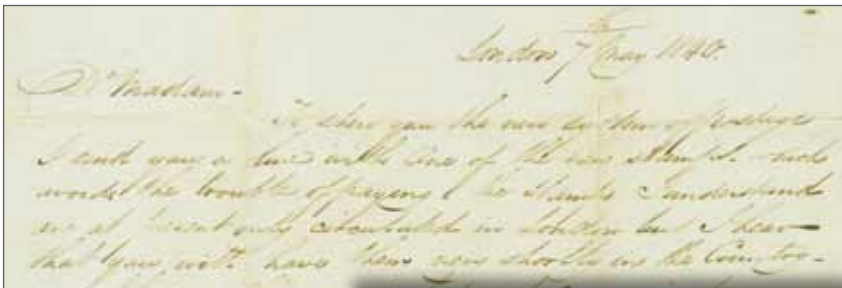 London 7th May 1840.
Dr Madam -
To shew you the new system of postage
I send you a line with one of the new stamps
avoids the trouble of paying the Stamps I understand
are at present only circulated in London but I hear
that you will have them very shortly in the Country -